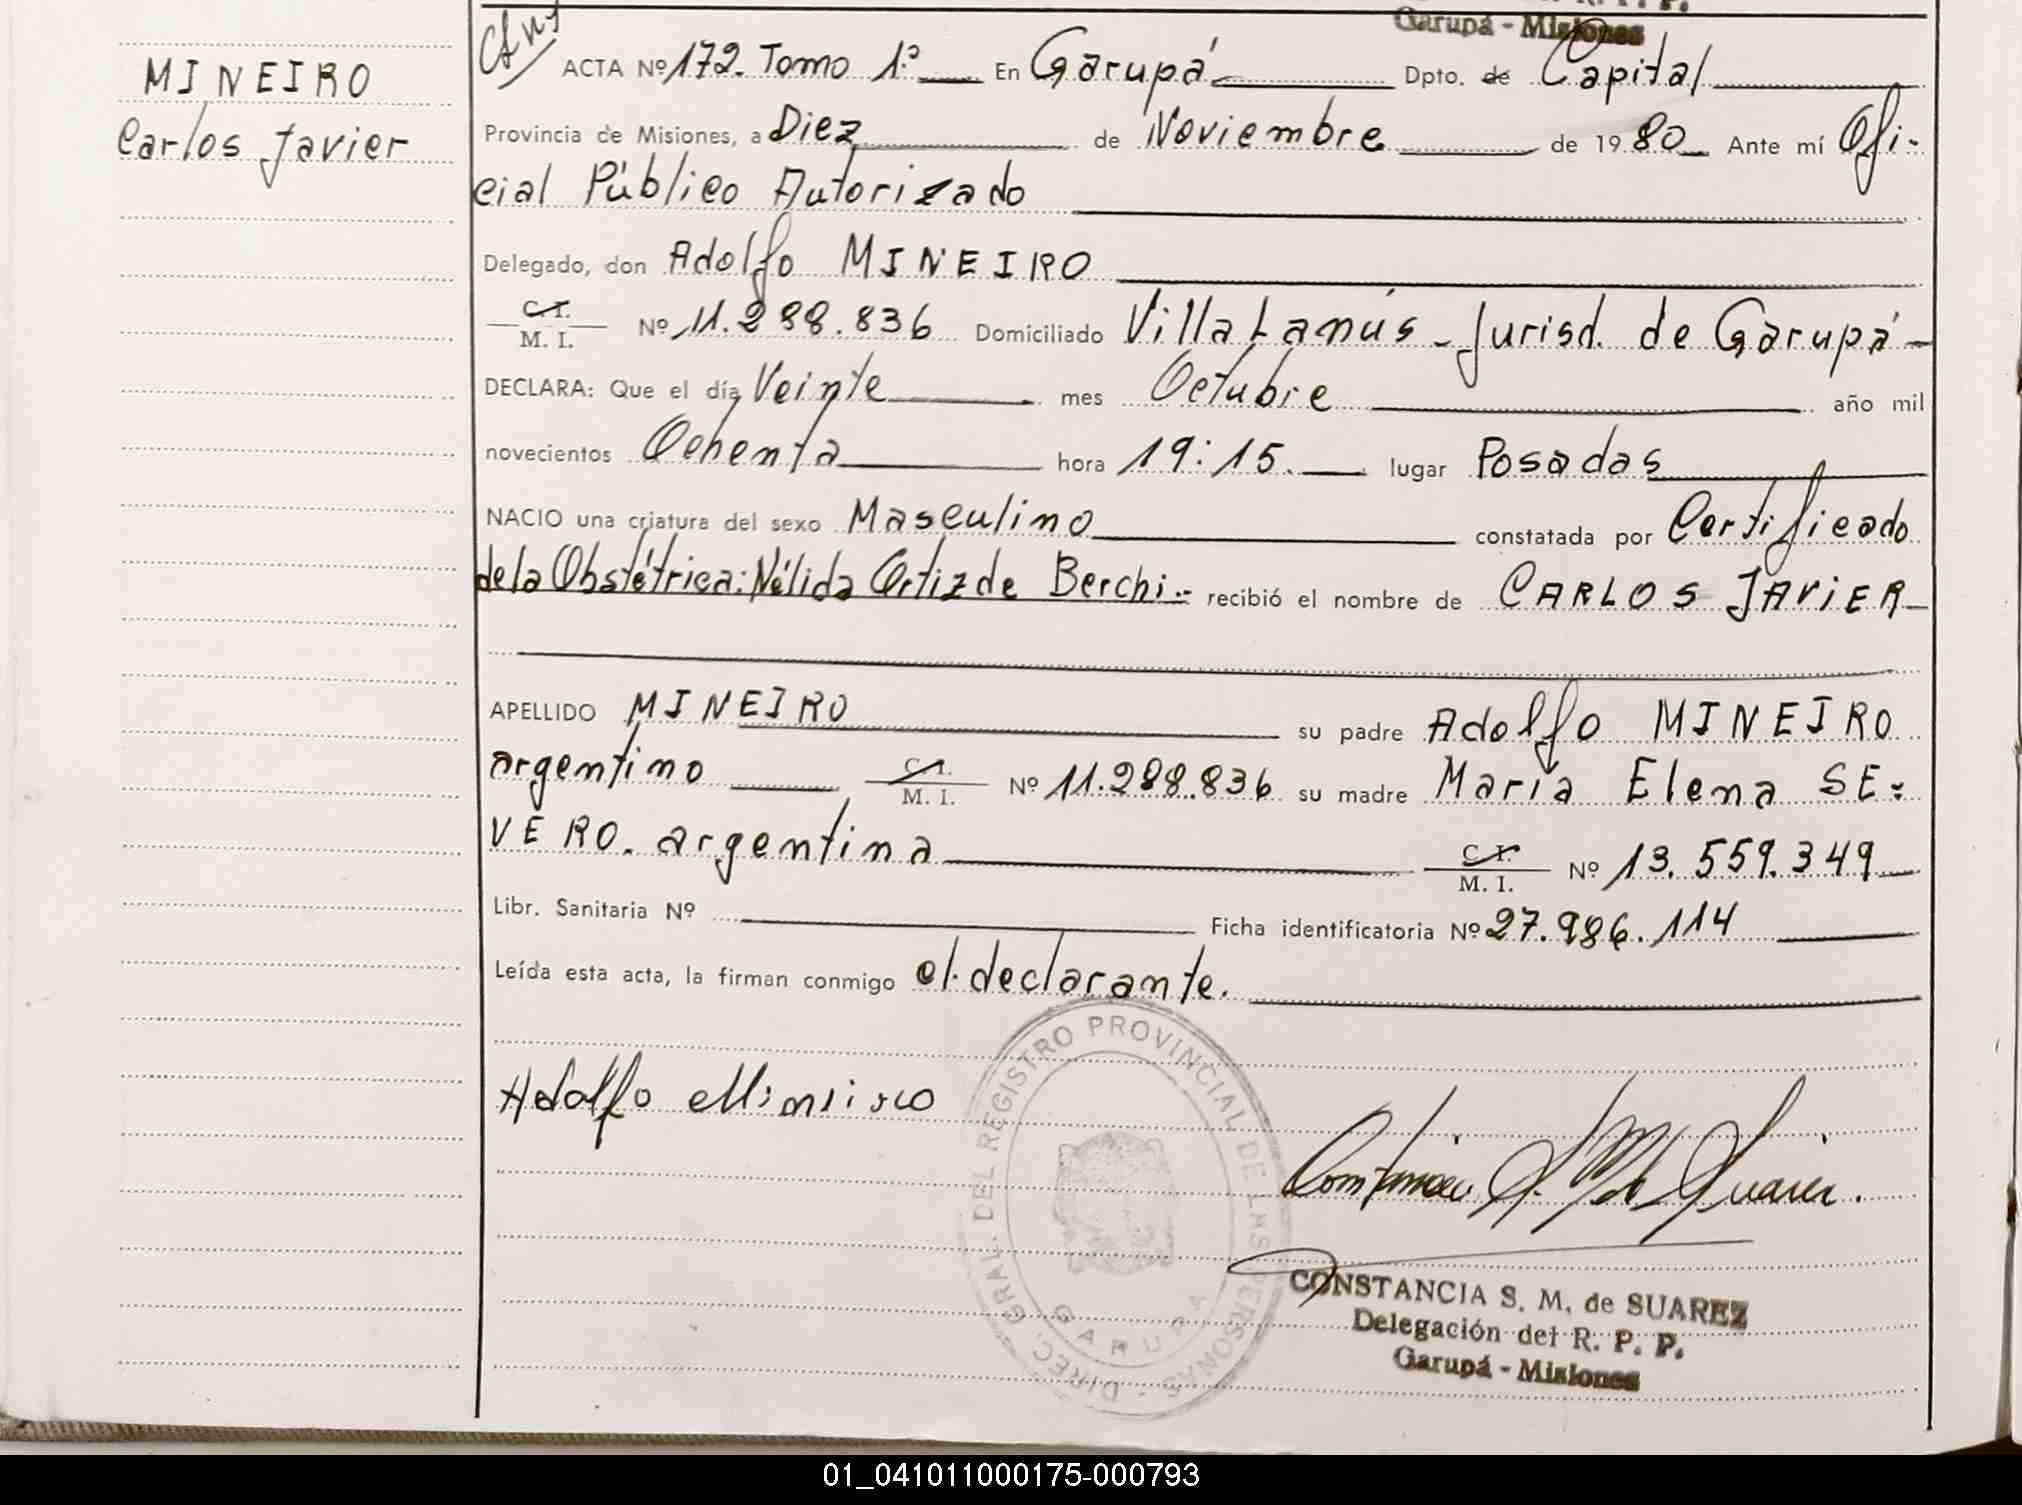 Garupá - Misiones
MINEIRO
Carlos Javier
ACTA Nº 172. Tomo 1º En Garupá Dpto. de Capital
Provincia de Misiones, a Diez de Noviembre de 1980 Ante mí Ofi-
cial Público Autorizado
Delegado, don Adolfo MINEIRO
C.I.
M. I. Nº 11.288.836 Domiciliado Villa Lanús - Jurisd. de Garupá -
DECLARA: Que el día Veinte mes Octubre año mil
novecientos Ochenta hora 19:15. lugar Posadas
NACIO una criatura del sexo Masculino constatada por Certificado
de la Obstétrica: Nélida Ortiz de Berchi.- recibió el nombre de CARLOS JAViER
APELLIDO MINEIRO su padre Adolfo MINEIRO
argentino C.I. M. I. Nº 11.288.836 su madre María Elena SE=
VERO. argentina C.I. M. I. Nº 13.559.349
Libr. Sanitaria Nº Ficha identificatoria Nº 27.986.114
Leída esta acta, la firman conmigo el declarante.
Adolfo Mineiro
DIREC. GRAL. DEL REGISTRO PROVINCIAL DE LAS PERSONAS -
GARUPA
Constancia S. M. de Suarez.
CONSTANCIA S. M. de SUAREZ
Delegación del R. P. P.
Garupá - Misiones
01_041011000175-000793